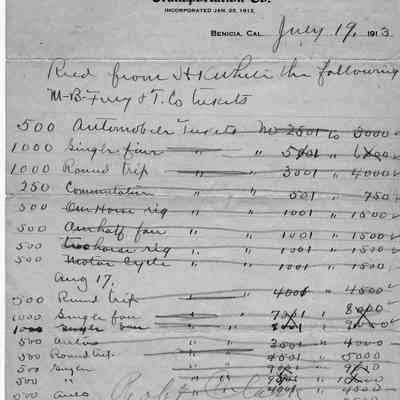 Transportation Co.
INCORPORATED JAN. 22, 1912.
BENICIA, CAL. July 19, 1913
Recd from the following
M-B- Fery & T. Co Tickets
500 Automobile Tickets No 2501 to 3000
1000 Single fare " 5001 6000
1000 Round trip " " 3001 4000
250 Commutation " " 501 750
500 One Horse rig " " 1001 1500
500 One half fare " " 1001 1500
500 two horse rig " " 1001 1500
500 Motor Cycle " " 1001 1500
Aug 17.
500 Round trip 4001 4500
1000 Single fare 7001 8000
1000 Single fare 9000
500 autos 3501 4000
500 Round trip 4501 5000
500 Single
500 "
500 Auto 4001 4500